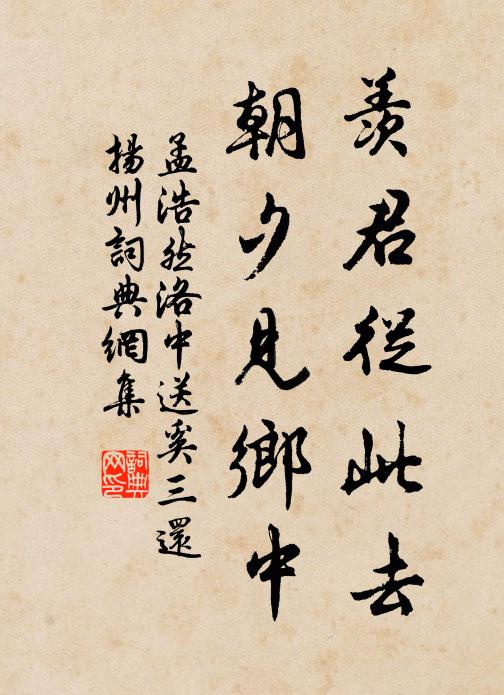 羨君從此去
朝夕見鄉中
孟浩然洛中送奚三還
揚州詞典網集
詞典
网印